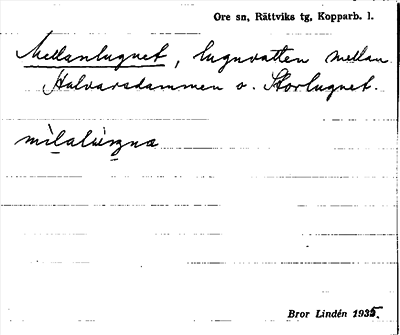 Ore sn, Rättviks tg, Kopparb. l.
Mellanlugnet, lugnvatten mellan
Halvarsdammen o. Storlugnet.
Bror Lindén 1935.